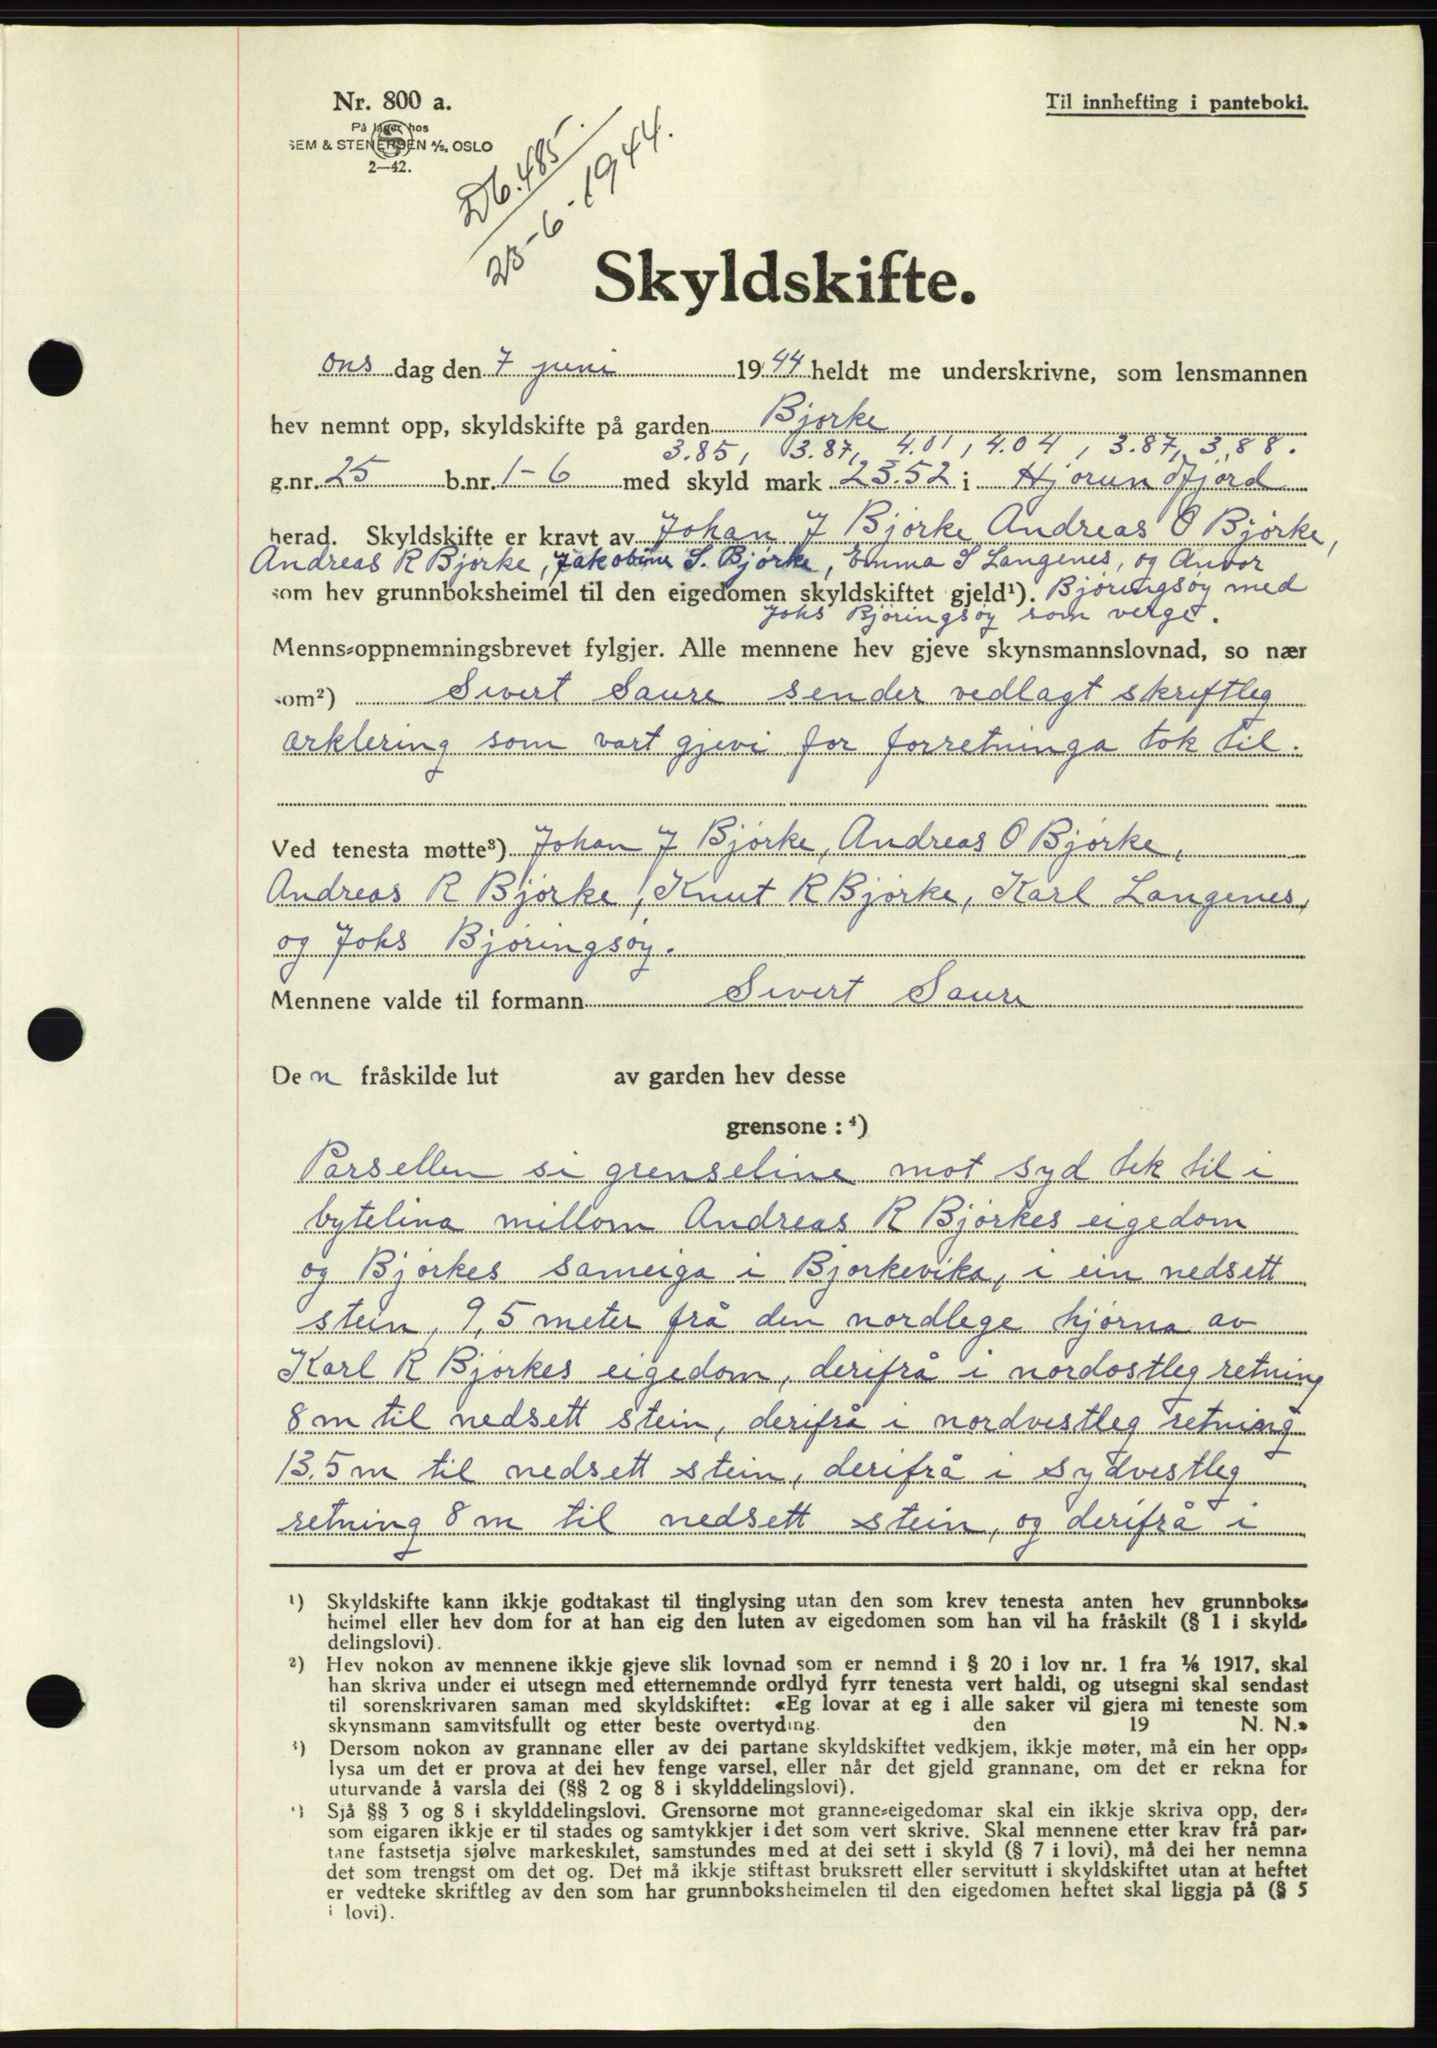 Nr. 800 a.
Til innhefting i panteboki.
På lager hos
SEM & STENERSEN A/S, OSLO
2—42.
Db. 485.
23-6-1944.
Skyldskifte.
ons dag den 7 juni 1944 heldt me underskrivne, som lensmannen
hev nemnt opp, skyldskifte på garden Bjørke
3.85, 3.87, 4.01, 4.04, 3.87, 3,88.
g.nr. 25 b.nr. 1-6 med skyld mark 23.52 i Hjørundfjord
herad. Skyldskifte er kravt av Johan J Bjørke Andreas O Bjørke,
Andreas R Bjørke, Jakobine S. Bjørke, Emma S Langenes, og Anvor
som hev grunnboksheimel til den eigedomen skyldskiftet gjeld¹). Bjøringsøy med
Johs Bjøringsøy som verge.
Menns-oppnemningsbrevet fylgjer. Alle mennene hev gjeve skynsmannslovnad, so nær
som²) Sivert Saure sender vedlagt skriftleg
ærklering som vart gjevi for forretninga tok til.
Ved tenesta møtte³) Johan J Bjørke, Andreas O Bjørke,
Andreas R Bjørke, Knut R Bjørke, Karl Langenes,
og Johs Bjøringsøy.
Mennene valde til formann Sivert Saure
Den fråskilde lut av garden hev desse
grensone: ⁴)
Parsellen si grenseline mot syd tek til i
bytelina millom Andreas R Bjørkes eigedom
og Bjørkes sameiga i Bjørkevika, i ein nedsett
stein, 9,5 meter frå den nordlege hjørna av
Karl R Bjørkes eigedom, derifrå i nordostleg retning
8 m til nedsett stein, derifrå i nordvestleg retning
13.5 m til nedsett stein, derifrå i sydvestleg
retning 8 m til nedsett stein, og derifrå i
¹) Skyldskifte kann ikkje godtakast til tinglysing utan den som krev tenesta anten hev grunnboks-
heimel eller hev dom for at han eig den luten av eigedomen som han vil ha fråskilt (§ 1 i skyld-
delingslovi).
²) Hev nokon av mennene ikkje gjeve slik lovnad som er nemnd i § 20 i lov nr. 1 fra ¹/₆ 1917, skal
han skriva under ei utsegn med etternemnde ordlyd fyrr tenesta vert haldi, og utsegni skal sendast
til sorenskrivaren saman med skyldskiftet: «Eg lovar at eg i alle saker vil gjera mi teneste som
skynsmann samvitsfullt og etter beste overtyding. den 19 N. N.»
³) Dersom nokon av grannane eller av dei partane skyldskiftet vedkjem, ikkje møter, må ein her opp-
lysa um det er prova at dei hev fenge varsel, eller når det gjeld grannane, om det er rekna for
uturvande å varsla dei (§§ 2 og 8 i skylddelingslovi).
⁴) Sjå §§ 3 og 8 i skylddelingslovi. Grensorne mot granne-eigedomar skal ein ikkje skriva opp, der-
som eigaren ikkje er til stades og samtykkjer i det som vert skrive. Skal mennene etter krav frå par-
tane fastsetja sjølve markeskilet, samstundes med at dei sett i skyld (§ 7 i lovi), må dei her nemna
det som trengst om det og. Det må ikkje stiftast bruksrett eller servitutt i skyldskiftet utan at heftet
er vedteke skriftleg av den som har grunnboksheimelen til den eigedomen heftet skal liggja på (§ 5
i lovi).